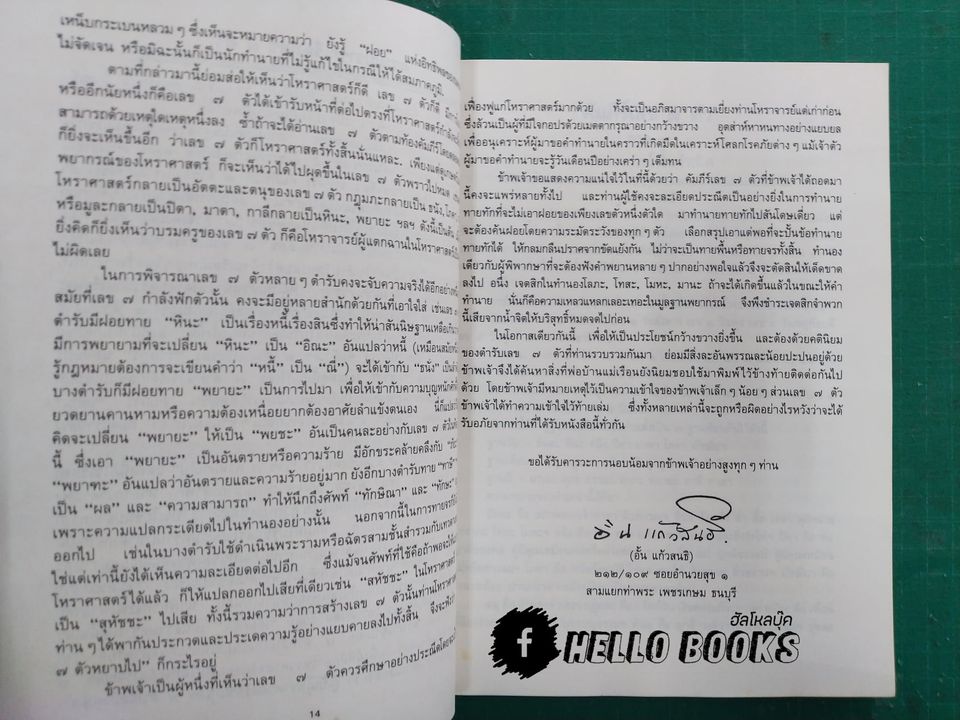 เหน็บกระเบนหลวม ๆ ซึ่งเห็นจะหมายความว่า ยังรู้ “ฝอย” แห่งอิทธิพลของ
ไม่จัดเจน หรือมิฉะนั้นก็เป็นนักทำนายที่ไม่รู้แก้ไขในกรณีให้ได้สมภาคภูมิ.
ตามที่กล่าวมานี้ย่อมส่อให้เห็นว่าโหราศาสตร์ก็ดี เลข ๗ ตัวก็ดี
หรืออีกนัยหนึ่งก็คือเลข ๗ ตัวได้เข้ารับหน้าที่ต่อไปตรงที่โหราศาสตร์
สามารถด้วยเหตุใดเหตุหนึ่งลง ซ้ำถ้าจะได้อ่านเลข ๗ ตัวตามท้องคัมภีร์
ก็ยิ่งจะเห็นขึ้นอีก ว่าเลข ๗ ตัวก็โหราศาสตร์ทั้งสิ้นนั่นแหละ เพียงแต่
พยากรณ์ของโหราศาสตร์ ก็จะเห็นว่าได้ไปผุดขึ้นในเลข ๗ ตัวพราวไปหมด
โหราศาสตร์กลายเป็นอัตตะและตนุของเลข ๗ ตัว กฎุมภะกลายเป็น ธนัง,
หรือมูละกลายเป็นปิตา, มาตา, กาลีกลายเป็นหินะ, พยายะ ฯลฯ ดังนี้เป็นต้น
ยิ่งคิดก็ยิ่งเห็นว่าบรมครูของเลข ๗ ตัว ก็คือโหราจารย์ผู้แตกฉานในโหราศาสตร์
ไม่ผิดเลย
ในการพิจารณาเลข ๗ ตัวหลาย ๆ ตำรับคงจะจับความจริงได้อีกอย่างหนึ่ง
สมัยที่เลข ๗ กำลังฟักตัวนั้น คงจะมีอยู่หลายสำนักด้วยกันที่เอาใจใส่ เช่นเลข
ตำรับมีฝอยทาย “หินะ” เป็นเรื่องหนี้เรื่องสินซึ่งทำให้น่าสันนิษฐานเหลือเกิน
มีการพยายามที่จะเปลี่ยน “หินะ” เป็น “อิณะ” อันแปลว่าหนี้ (เหมือนสมัย
รู้กฎหมายต้องการจะเขียนคำว่า “หนี้” เป็น “ณี่”) จะได้เข้ากับ “ธนัง” เป็น
บางตำรับมีฝอยทาย “พยายะ” เป็นการไปมา เพื่อให้เข้ากับความบุญหนัก
ยวดยานคานหามหรือความต้องเหนื่อยยากต้องอาศัยลำแข้งตนเอง นี่ก็แปล
คิดจะเปลี่ยน “พยายะ” ให้เป็น “พยชะ” อันเป็นคนละอย่างกับเลข ๗ ตัว
นี้ ซึ่งเอา “พยายะ” เป็นอันตรายหรือความร้าย มีอักขระคล้ายคลึงกับ
“พยาทะ” อันแปลว่าอันตรายและความร้ายอยู่มาก ยังอีกบางตำรับทาย “ทาษี”
เป็น “ผล” และ “ความสามารถ” ทำให้นึกถึงศัพท์ “ทักษิณา” และ “ทักษะ”
เพราะความแปลกระเดียดไปในทำนองอย่างนั้น นอกจากนี้ในการทายจร
ออกไป เช่นในบางตำรับใช้ดำเนินพระรามหรือฉัตรสามชั้นสำรวมกับ
ใช่แต่เท่านี้ยังได้เห็นความละเอียดต่อไปอีก ซึ่งแม้จนศัพท์ที่ใช้คือถ้าพอจะ
โหราศาสตร์ได้แล้ว ก็ให้แปลกออกไปเสียทีเดียวเช่น “สหัชชะ” ในโหราศาสตร์
เป็น “สุหัชชะ” ไปเสีย ทั้งนี้รวมความว่าการสร้างเลข ๗ ตัวนั้นท่านโหรา
ท่าน ๆ ได้พากันประกวดและประเดความรู้อย่างแยบคายลงไปทั้งสิ้น จึงจะ
๗ ตัวหยาบไป” ก็กระไรอยู่
ข้าพเจ้าเป็นผู้หนึ่งที่เห็นว่าเลข ๗ ตัวควรศึกษาอย่างประณีตโดย
14
เฟื่องฟูแก่โหราศาสตร์มากด้วย ทั้งจะเป็นอภิสมาจารตามเยี่ยงท่านโหราจารย์แต่เก่าก่อน
ซึ่งล้วนเป็นผู้ที่มีใจกอปรด้วยเมตตากรุณาอย่างกว้างขวาง อุตส่าห์หาหนทางอย่างแยบยล
เพื่ออนุเคราะห์ผู้มาขอคำทำนายในคราวที่เกิดมืดในเคราะห์โศลกโรคภัยต่าง ๆ แม้เจ้าตัว
ผู้มาขอคำทำนายจะรู้วันเดือนปีอย่างเคร่า ๆ เต็มทน
ข้าพเจ้าขอแสดงความแน่ใจไว้ในที่นี้ด้วยว่า คัมภีร์เลข ๗ ตัวที่ข้าพเจ้าได้ถอดมา
นี้คงจะแพร่หลายทั่วไป และท่านผู้ใช้คงจะละเอียดประณีตเป็นอย่างยิ่งในการทำนาย
ทายทักที่จะไม่เอาฝอยของเพียงเลขตัวหนึ่งตัวใด มาทำนายทายทักไปสันโดษเดี่ยว แต่
จะต้องค้นฝอยโดยความระมัดระวังของทุก ๆ ตัว เลือกสรุปเอาแต่พอที่จะปั้นข้อทำนาย
ทายทักได้ ให้กลมกลืนปราศจากขัดแย้งกัน ไม่ว่าจะเป็นทายพื้นหรือทายจรทั้งสิ้น ทำนอง
เดียวกับผู้พิพากษาที่จะต้องฟังคำพยานหลาย ๆ ปากอย่างพอใจแล้วจึงจะตัดสินให้เด็ดขาด
ลงไป อนึ่ง เจตสิกในทำนองโลภะ, โทสะ, โมหะ, มานะ ถ้าจะได้เกิดขึ้นแล้วในขณะให้คำ
ทำนาย นั่นก็คือความเหลวแหลกเลอะเทอะในมูลฐานพยากรณ์ จึงพึงชำระเจตสิกจำพวก
นี้เสียจากน้ำจิตให้บริสุทธิ์หมดจดไปก่อน
ในโอกาสเดียวกันนี้ เพื่อให้เป็นประโยชน์กว้างขวางยิ่งขึ้น และต้องด้วยคตินิยม
ของตำรับเลข ๗ ตัวที่ท่านรวบรวมกันมา ย่อมมีสิ่งละอันพรรณละน้อยปะปนอยู่ด้วย
ข้าพเจ้าจึงได้ค้นหาสิ่งที่พ่อบ้านแม่เรือนยังนิยมชอบใช้มาพิมพ์ไว้ข้างท้ายติดต่อกันไป
ด้วย โดยข้าพเจ้ามีหมายเหตุไว้เป็นความเข้าใจของข้าพเจ้าเล็ก ๆ น้อย ๆ ส่วนเลข ๗ ตัว
ข้าพเจ้าได้ทำความเข้าใจไว้ท้ายเล่ม ซึ่งทั้งหลายเหล่านี้จะถูกหรือผิดอย่างไรหวังว่าจะได้
รับอภัยจากท่านที่ได้รับหนังสือนี้ทั่วกัน
ขอได้รับคารวะการนอบน้อมจากข้าพเจ้าอย่างสูงทุก ๆ ท่าน
อั้น แก้วสนธิ.
(อั้น แก้วสนธิ)
๒๑๒/๑๐๙ ซอยอำนวยสุข ๑
สามแยกท่าพระ เพชรเกษม ธนบุรี
ฮัลโหลบุ๊ค
f HELLO BOOKS